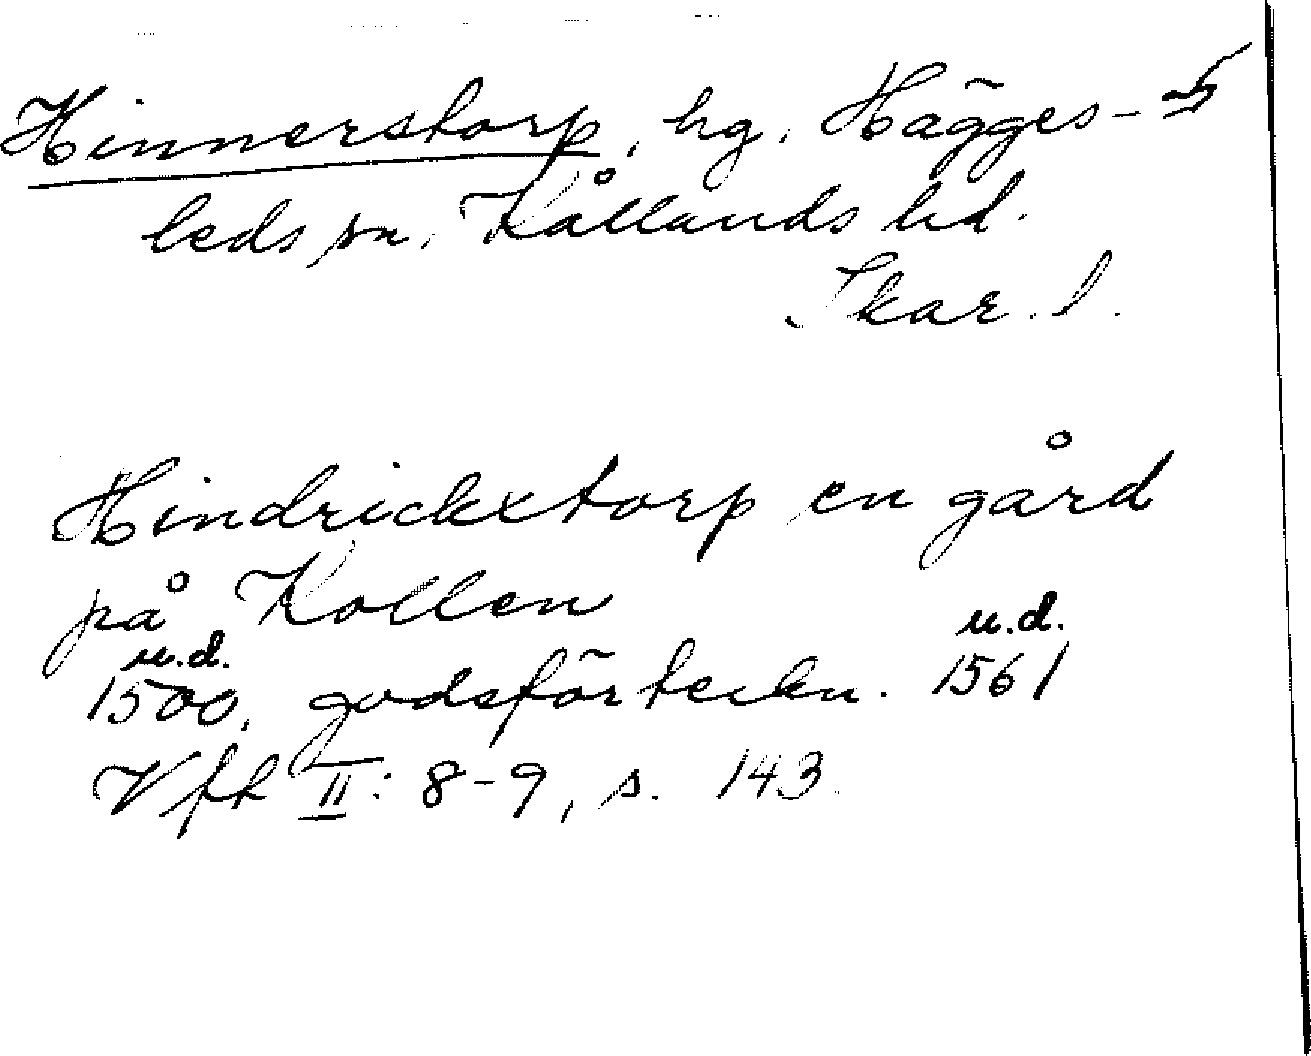 Hinnerstorp, hg, Hägges-
leds sn, Kållands hd.
Skar. l.
Hindrickxtorp en gård
på Kollen
u.d. u.d.
1500, godsförteckn. 1561
Vfk II: 8-9, s. 143